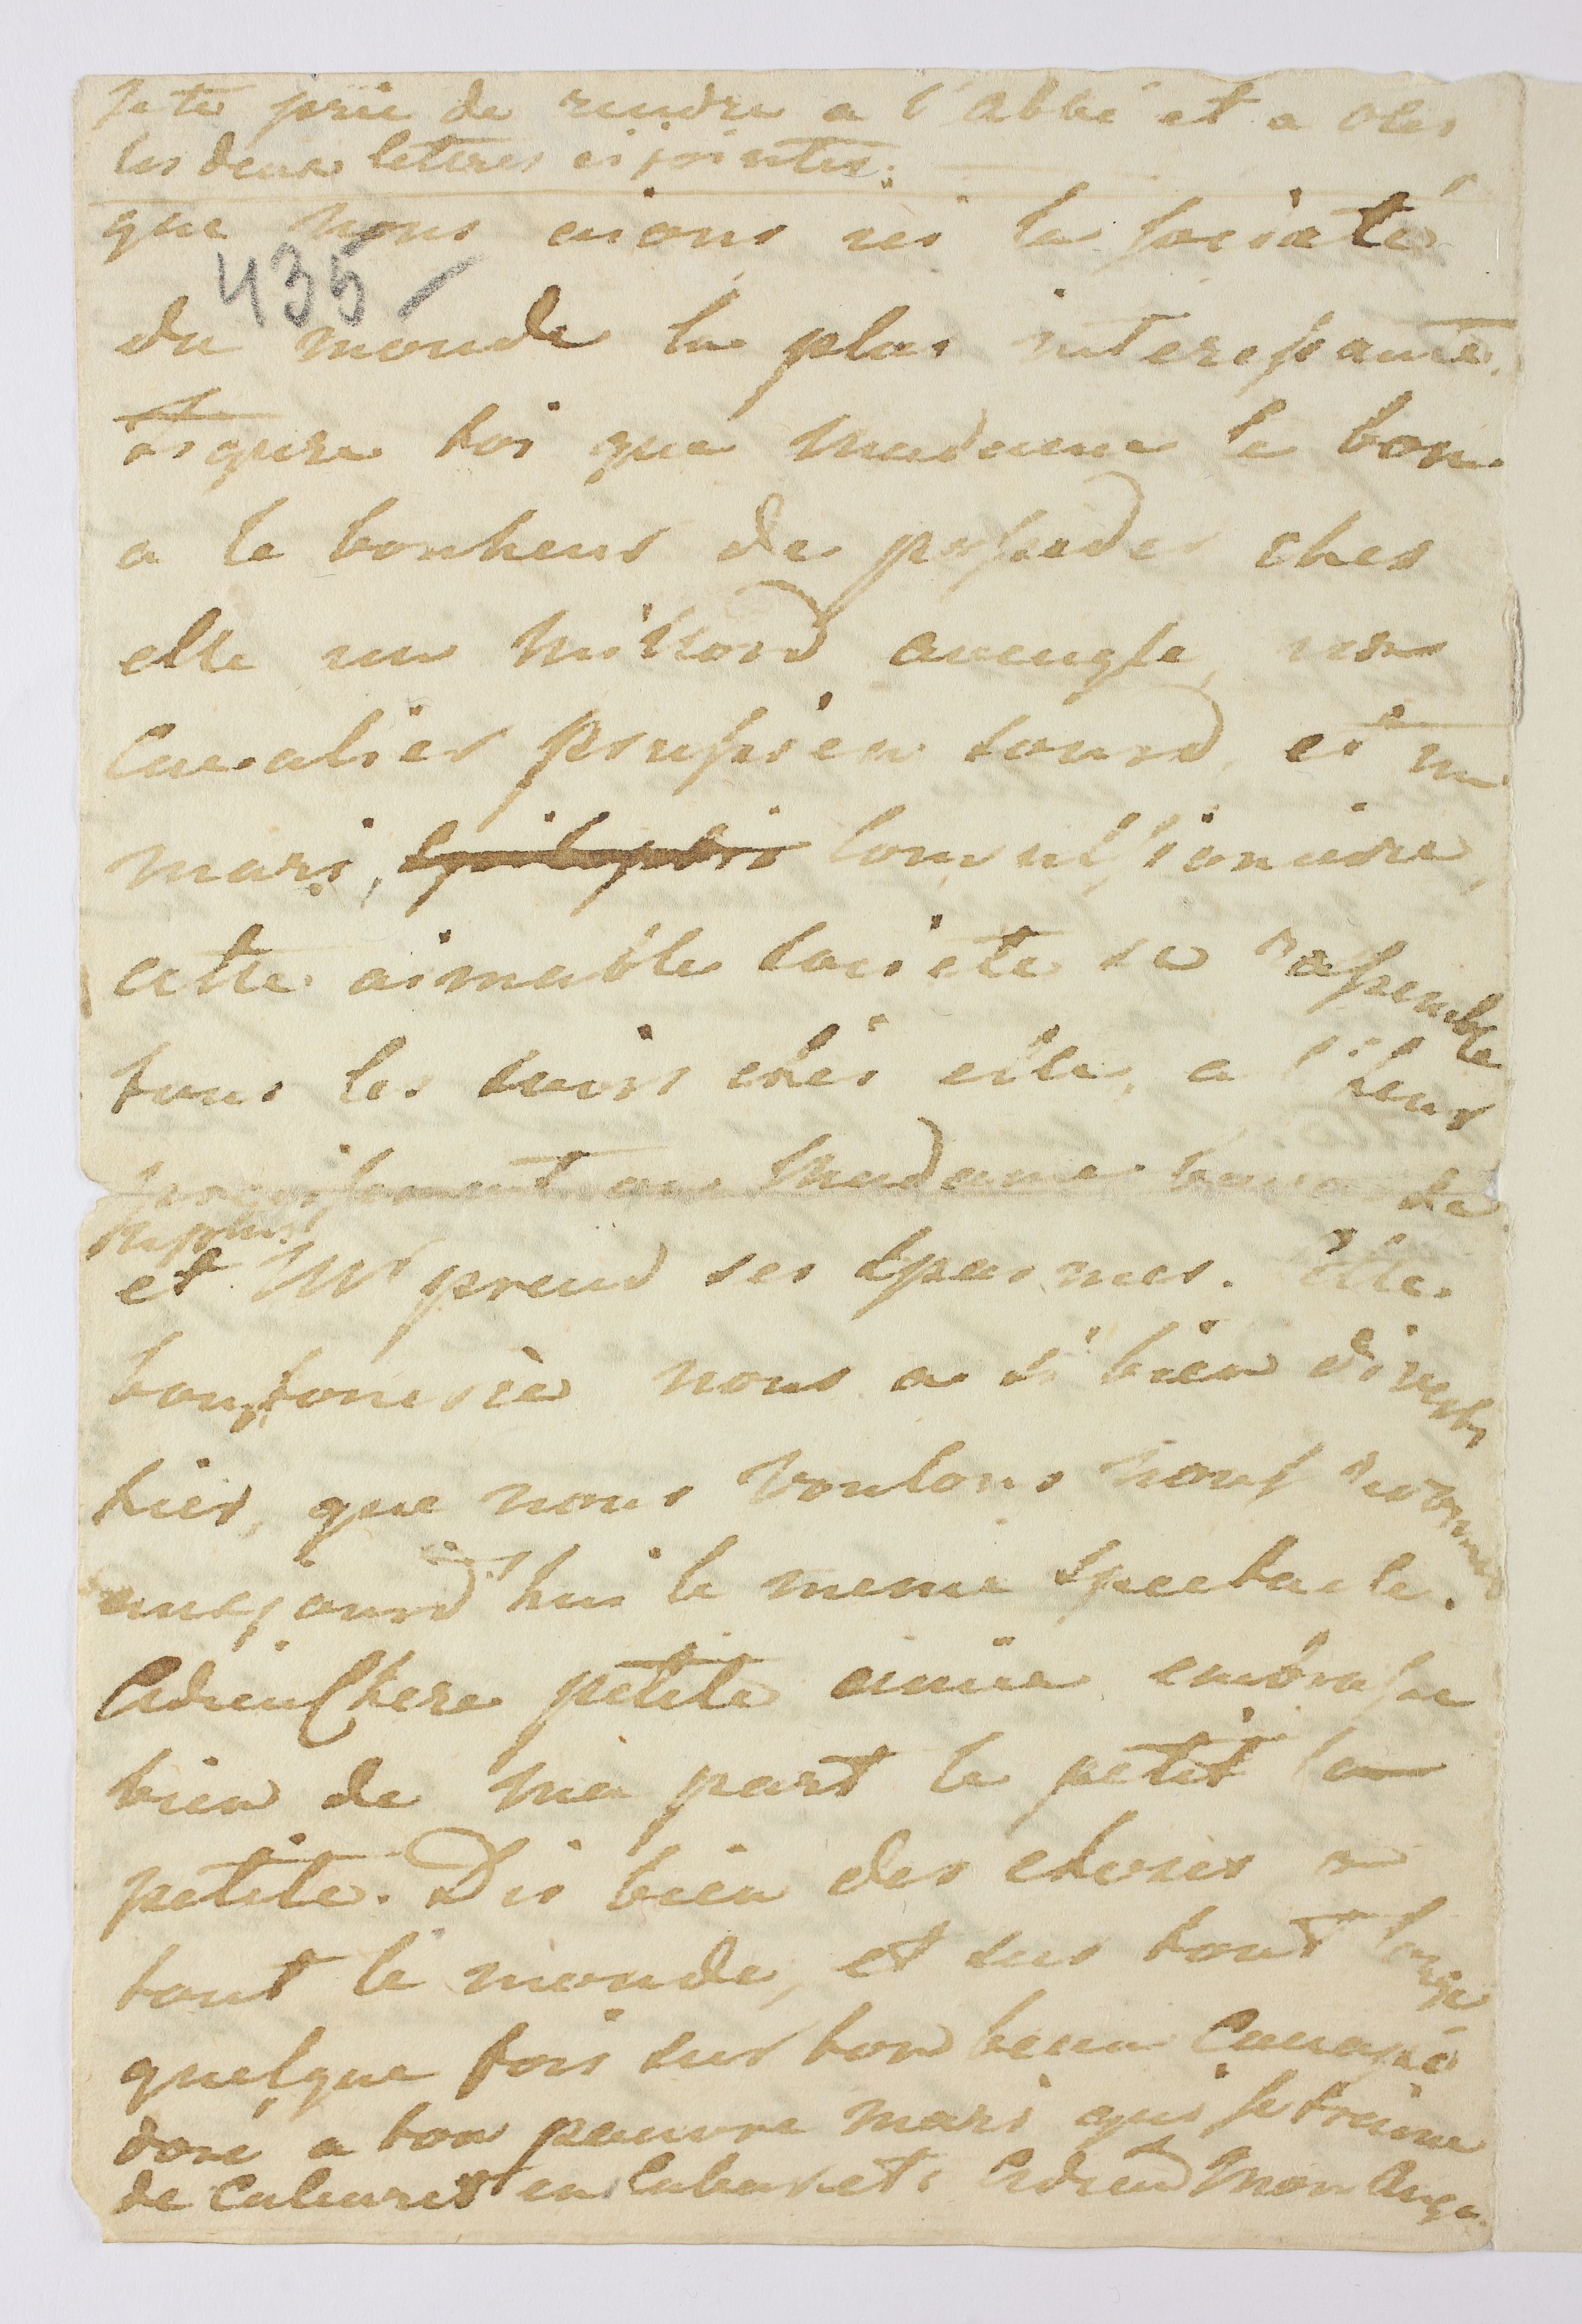 Je te prie de rendre a l'Abbé et a
les deux lettres ci jointes.
que nous aions ici la societé
435
du monde la plus interessante.
figure toi que Madame le bon
a le bonheur de posseder ches
elle un Millord aveugle, un
Cavalier prussien sourd, et un
mari, convulsionaire,
cette aimable societe se rassemble
tous les soirs chés elle, a l'heur
Madame
et Mr prend ses spasmes. Cette
bouffonerie nous a si bien diverti
hier, que nous voulons nous
aujourd'hui le meme spectacle.
Adieu Chere petite amie embrasse
bien de ma part le petit la
petite. Dis bien des choses a
tout le monde, et sur tout songe
quelque fois sur ton beau Canapé
doré a ton pauvre mari qui se traine
de Cabaret en Cabaret. Adieu Mon Ange.